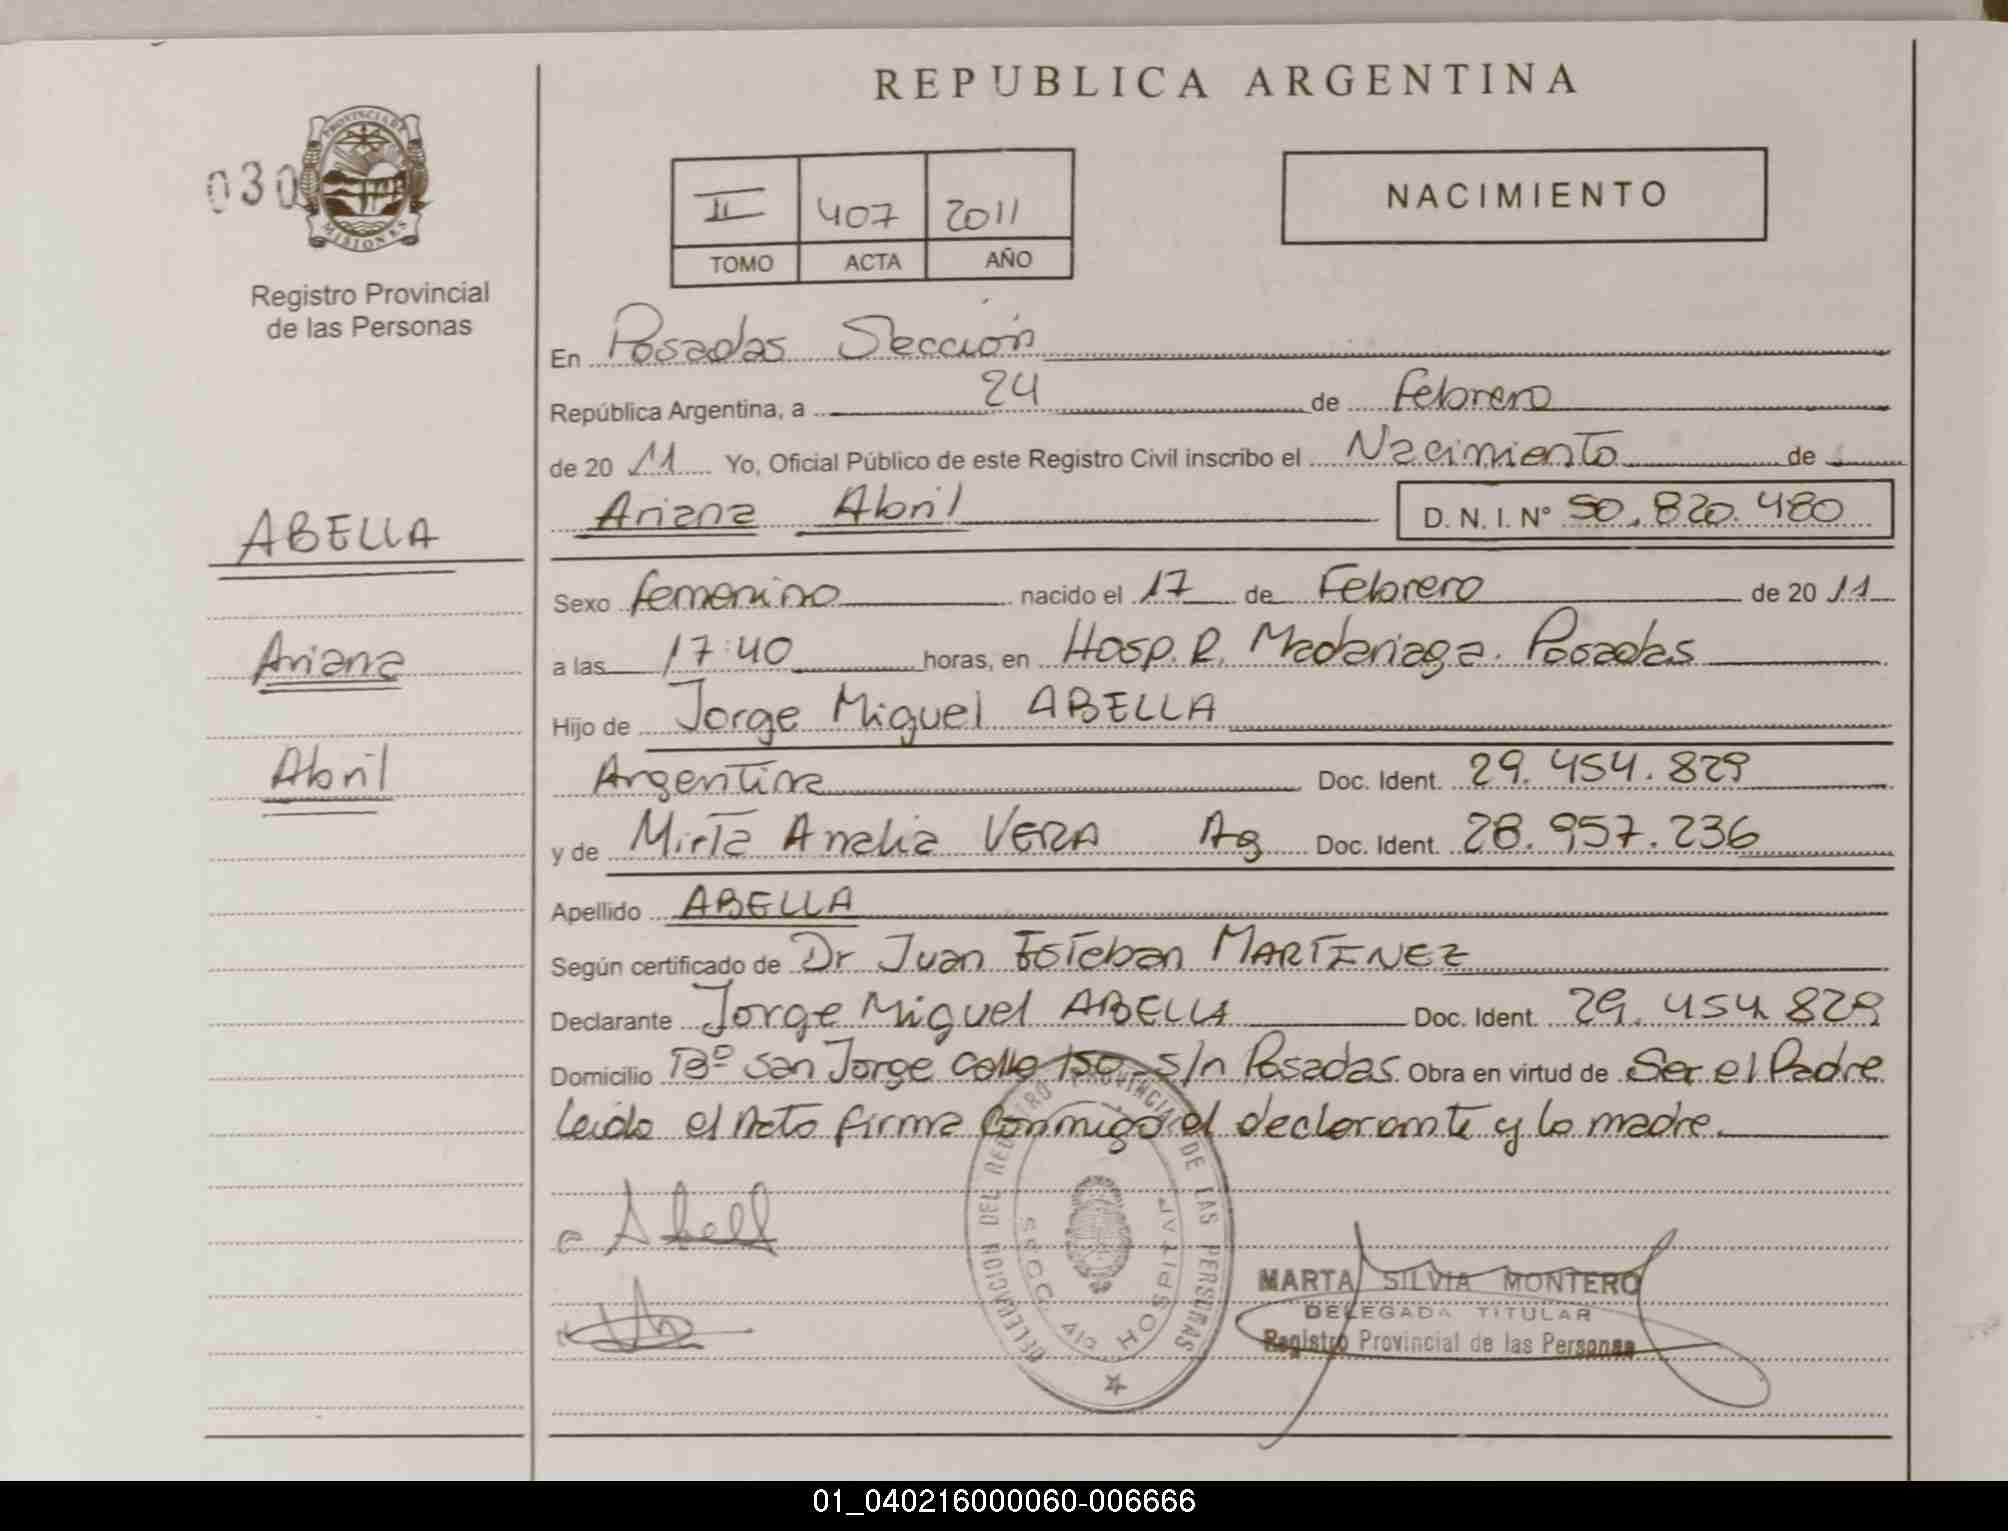 REPUBLICA ARGENTINA
030
PROVINCIA DE
MISIONES
Registro Provincial
de las Personas
II 407 2011
TOMO ACTA AÑO
NACIMIENTO
En Posadas Sección
República Argentina, a 24 de Febrero
de 20 11 Yo, Oficial Público de este Registro Civil inscribo el Nacimiento de
Ariana Abril D. N. I. N° 50.820.480
ABELLA
Ariana
Abril
Sexo femenino nacido el 17 de Febrero de 20 11
a las 17:40 horas, en Hosp. R. Madariaga. Posadas
Hijo de Jorge Miguel ABELLA
Argentina Doc. Ident. 29.454.829
y de Mirta Analia VERA Ag Doc. Ident. 28.957.236
Apellido ABELLA
Según certificado de Dr Juan Esteban MARTINEZ
Declarante Jorge Miguel ABELLA Doc. Ident. 29.454.829
Domicilio Bº San Jorge calle 150 s/n Posadas Obra en virtud de Ser el Padre
Leida el Acto firma conmigo el declarante y la madre.
Abell
DELEGACION DEL REGISTRO PROVINCIAL DE LAS PERSONAS
SECC. HOSPITAL
MARTA SILVIA MONTERO
DELEGADA TITULAR
Registro Provincial de las Personas
01_040216000060-006666